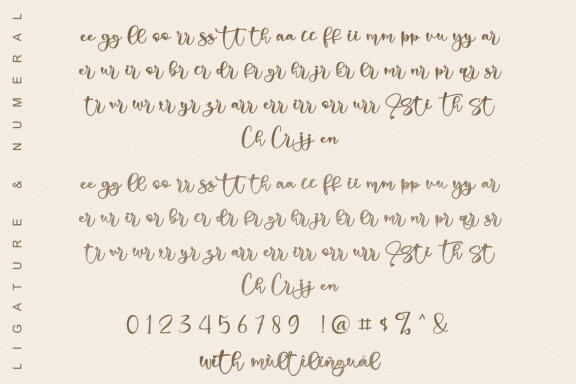 LIGATURE & NUMERAL
ee gg ll oo rr ss tt th aa cc ff ii mm pp vu yy ar
er ur ir or br cr dr fr gr hr jr kr lr mr nr pr qr sr
tr vr wr xr yr zr arr err irr orr urr Sti Th St
Ch Cr jj en
ee gg ll oo rr ss tt th aa cc ff ii mm pp vu yy ar
er ur ir or br cr dr fr gr hr jr kr lr mr nr pr qr sr
tr vr wr xr yr zr arr err irr orr urr Sti Th St
Ch Cr jj en
0 1 2 3 4 5 6 7 8 9 ! @ # $ % ^ &
with multilingual